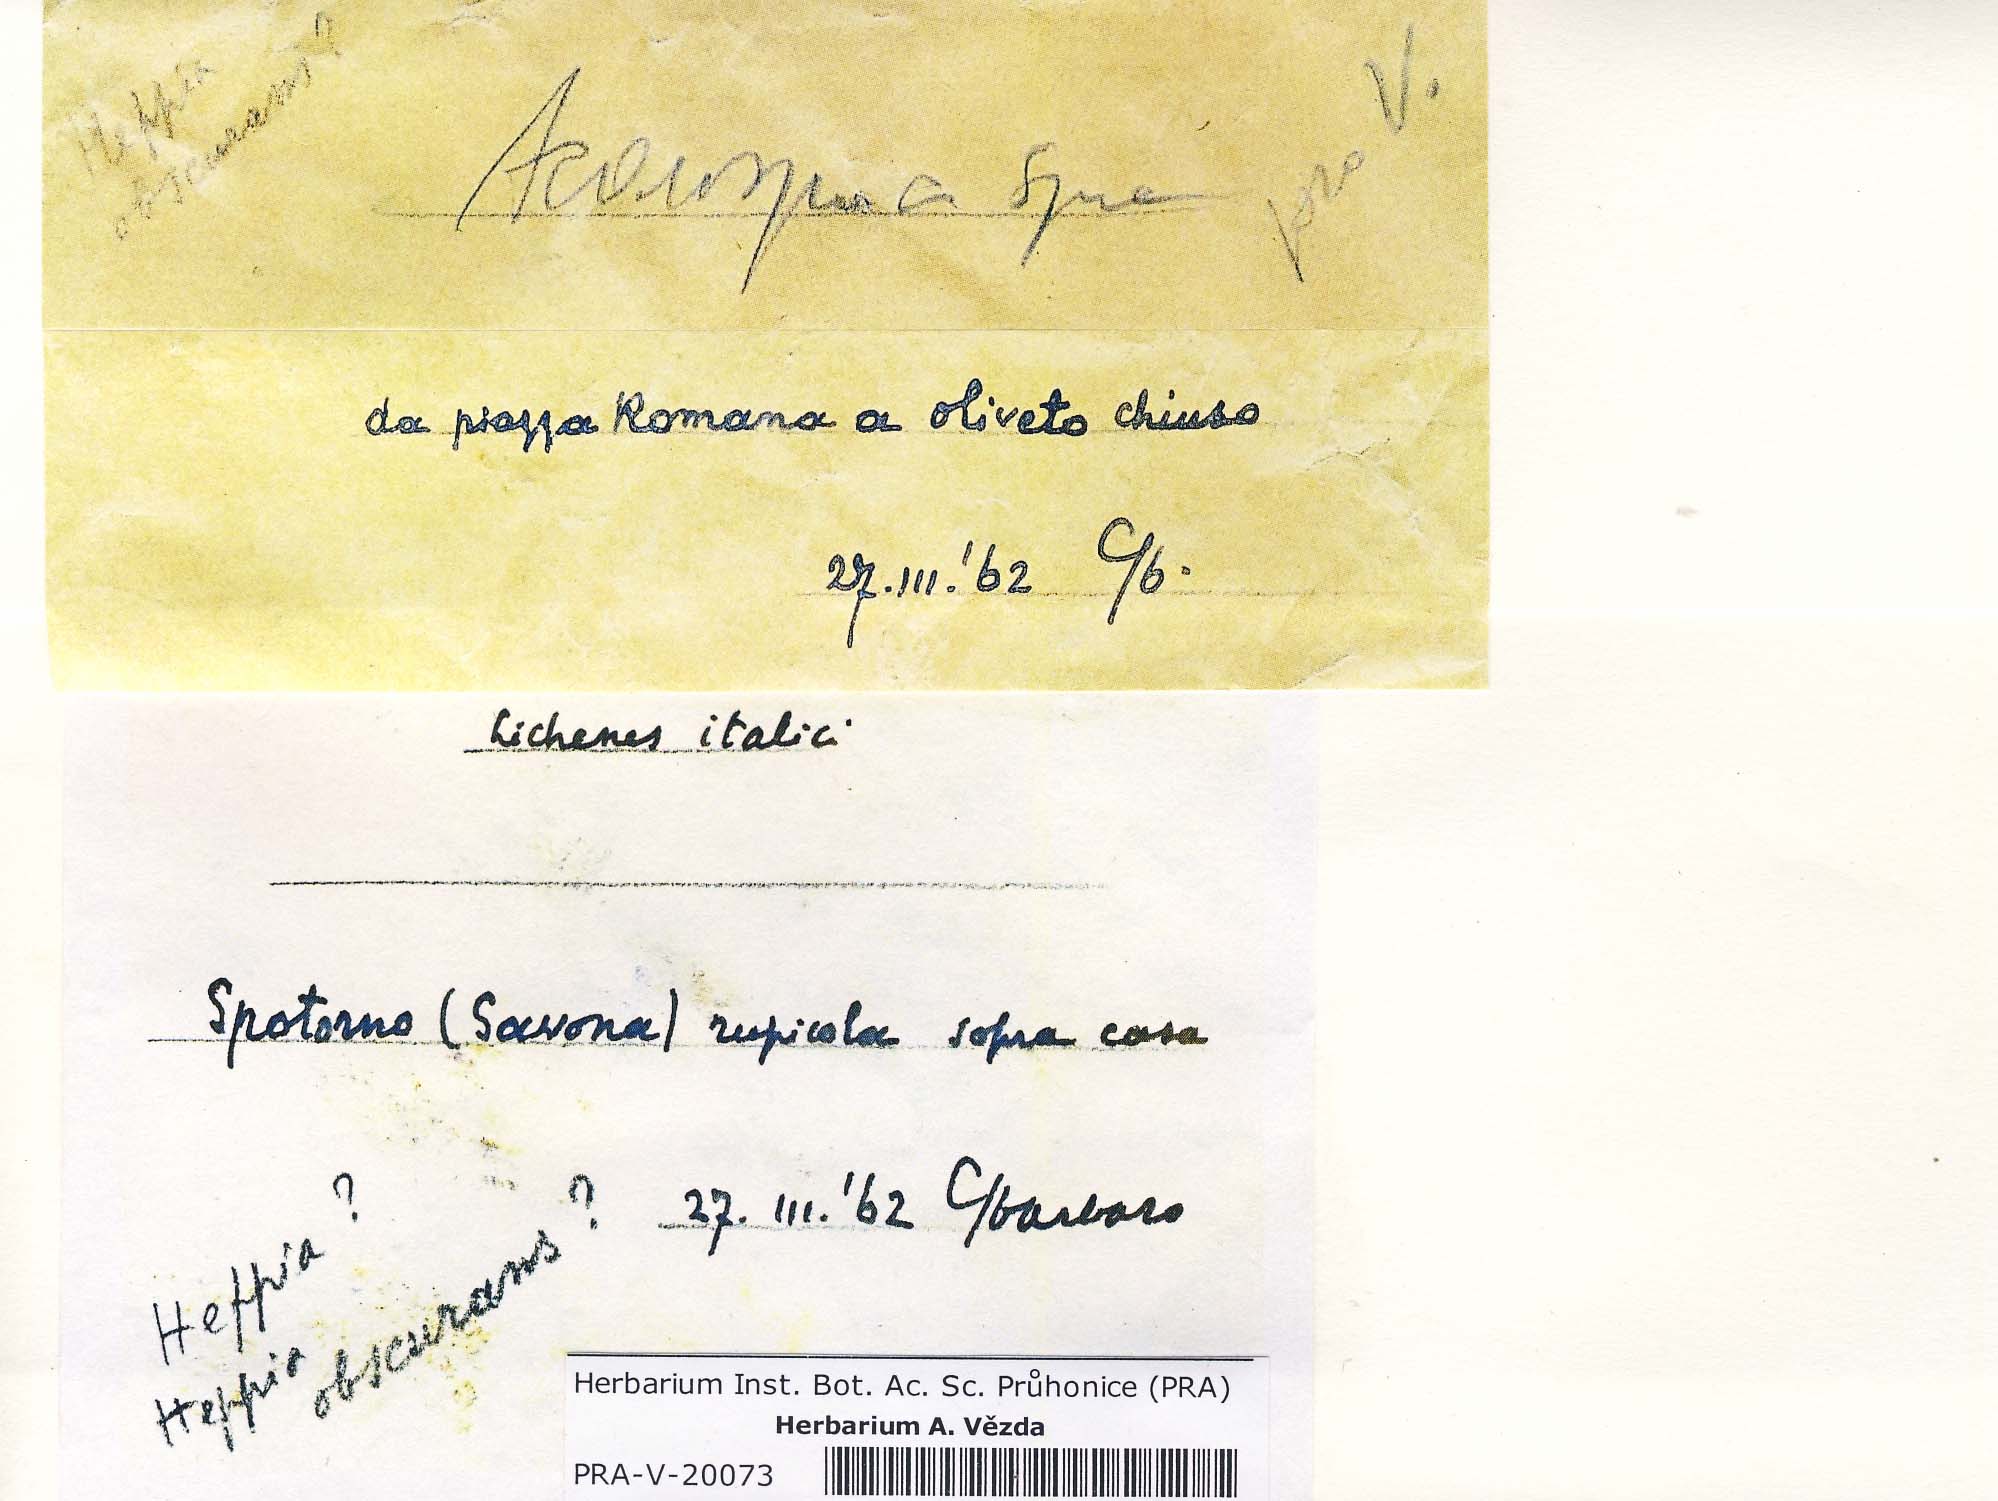 Heppia
obscurans?
Acarospora spec
pro V.
da piazza Romana a oliveto chiuso
27.III.'62 C/b.
Lichenes italici
Spotorno (Savona) rupicola sopra casa
27. III. '62 C/barbaro
Heppia ?
Heppia obscurans ?
Herbarium Inst. Bot. Ac. Sc. Průhonice (PRA)
Herbarium A. Vězda
PRA-V-20073